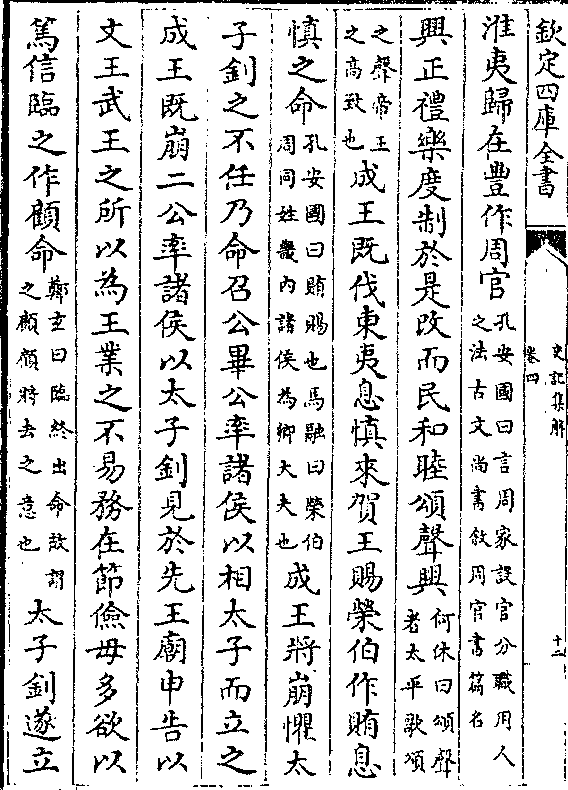 欽定四庫全書
史記集解
卷四
十二
淮夷歸在豐作周官孔安國曰言周家設官分職用人之法古文尚書敘周官書篇名
興正禮樂度制於是改而民和睦頌聲興何休曰頌聲者太平歌頌
之聲帝王之高致也成王既伐東夷息慎來賀王賜榮伯作賄息
慎之命孔安國曰賄賜也馬融曰榮伯周同姓畿內諸侯為卿大夫也成王將崩懼太
子釗之不任乃命召公畢公率諸侯以相太子而立之
成王既崩二公率諸侯以太子釗見於先王廟申告以
文王武王之所以為王業之不易務在節儉毋多欲以
篤信臨之作顧命鄭玄曰臨終出命故謂之顧顧將去之意也太子釗遂立